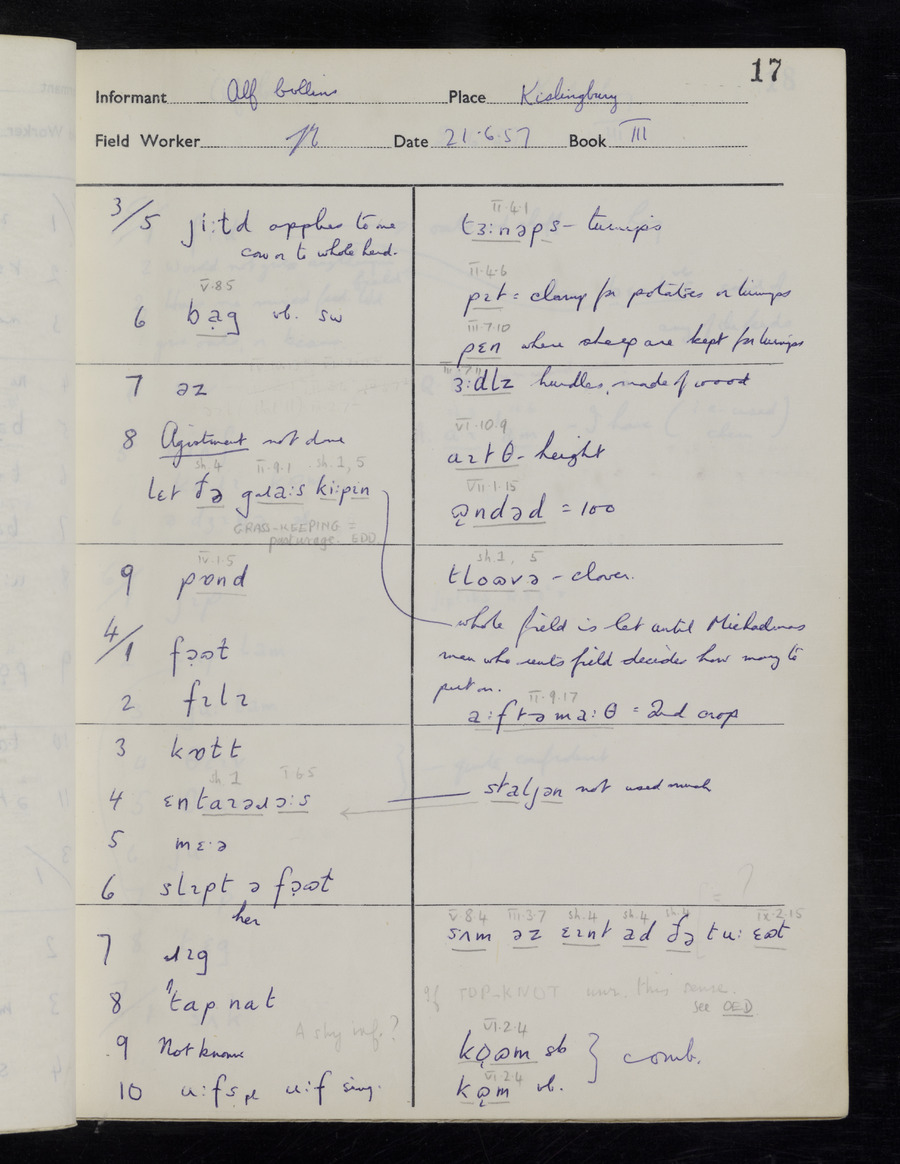 17
Informant Alf Collins Place Kislingbury
Field Worker Date 21·6·57 Book III
3/5 ji:td applies to one
cow or to whole herd.
V·8·5
6 bạg vb. sw
7 əz
8 Agistment not done
sh.4 II·9·1 sh.1, 5
lɛt ðə gɹa:s ki:pɪn
GRASS-KEEPING =
pasturage. EDD.
IV·1·5
9 pɒnd
4/1 fə̣ɷt
2 fɪlɪ
3 kɒtt
sh 1 I 6 5
4
5 mɛ·ə
6 slɪpt ə fə̣ɷt
her
7 ɹɪg
8 'tap nat
A shy inf.?
9 Not known
10 u:fs pl u:f sing.
II·4·1
tɜ:nəps – turnips
II·4·6
pɪt = clamp for potatoes or turnips
III·7·10
pɛn where sheep are kept for turnips
III·7·11
ɜ:dlz hurdles, made of wood
VI·10·9
aɪtθ – height
VII·1·15
ɷ̣ndəd = 100
sh.1, 5
tloɷvə – clover.
whole field is let until Michaelmas
man who rents field decides how many to
put on.
II·9·17
a:ftəma:θ = 2nd crop
staljən not used much
= ?
V·8·4 III·3·7 sh.4 sh.4 sh.4 IX·2·15
sʌm əz ɛɪnt ad ðə tu: ɛɷt
If TOP-KNOT unr. this sense.
see OED
VI·2·4
kọɷm sb } comb.
VI·2·4
kɷ̣m vb.